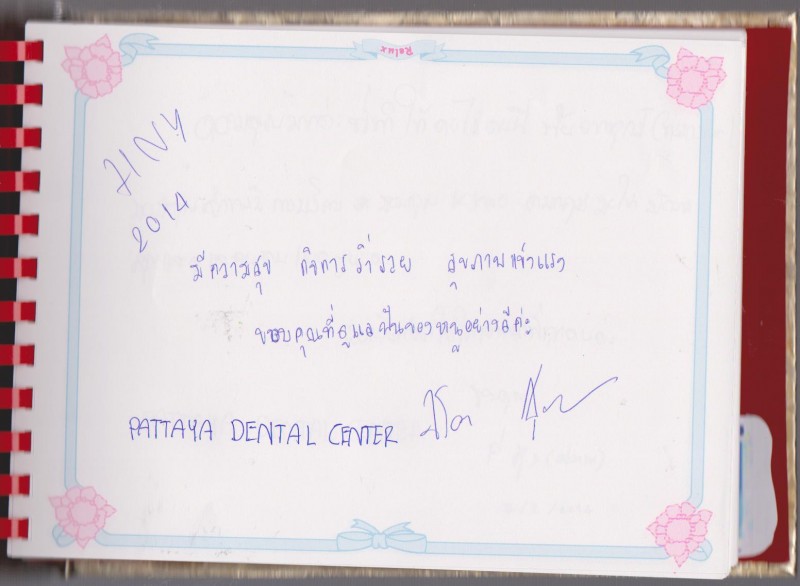 Relax
HNY
2014
มีความสุข กิจการร่ำรวย สุขภาพแข็งแรง
ขอบคุณที่ดูแลฟันของหนูอย่างดีค่ะ
PATTAYA DENTAL CENTER